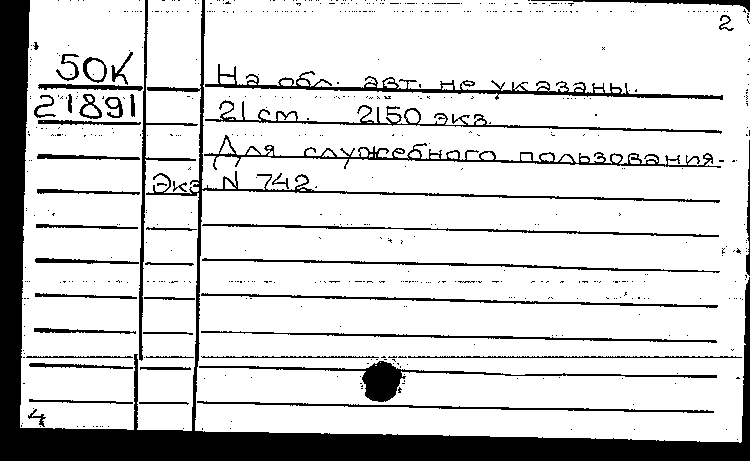 2
50К На обл. авт. не указаны.
21891 21 ст. 2150 экз.
Для служебного пользования.
Экз N 742.
4